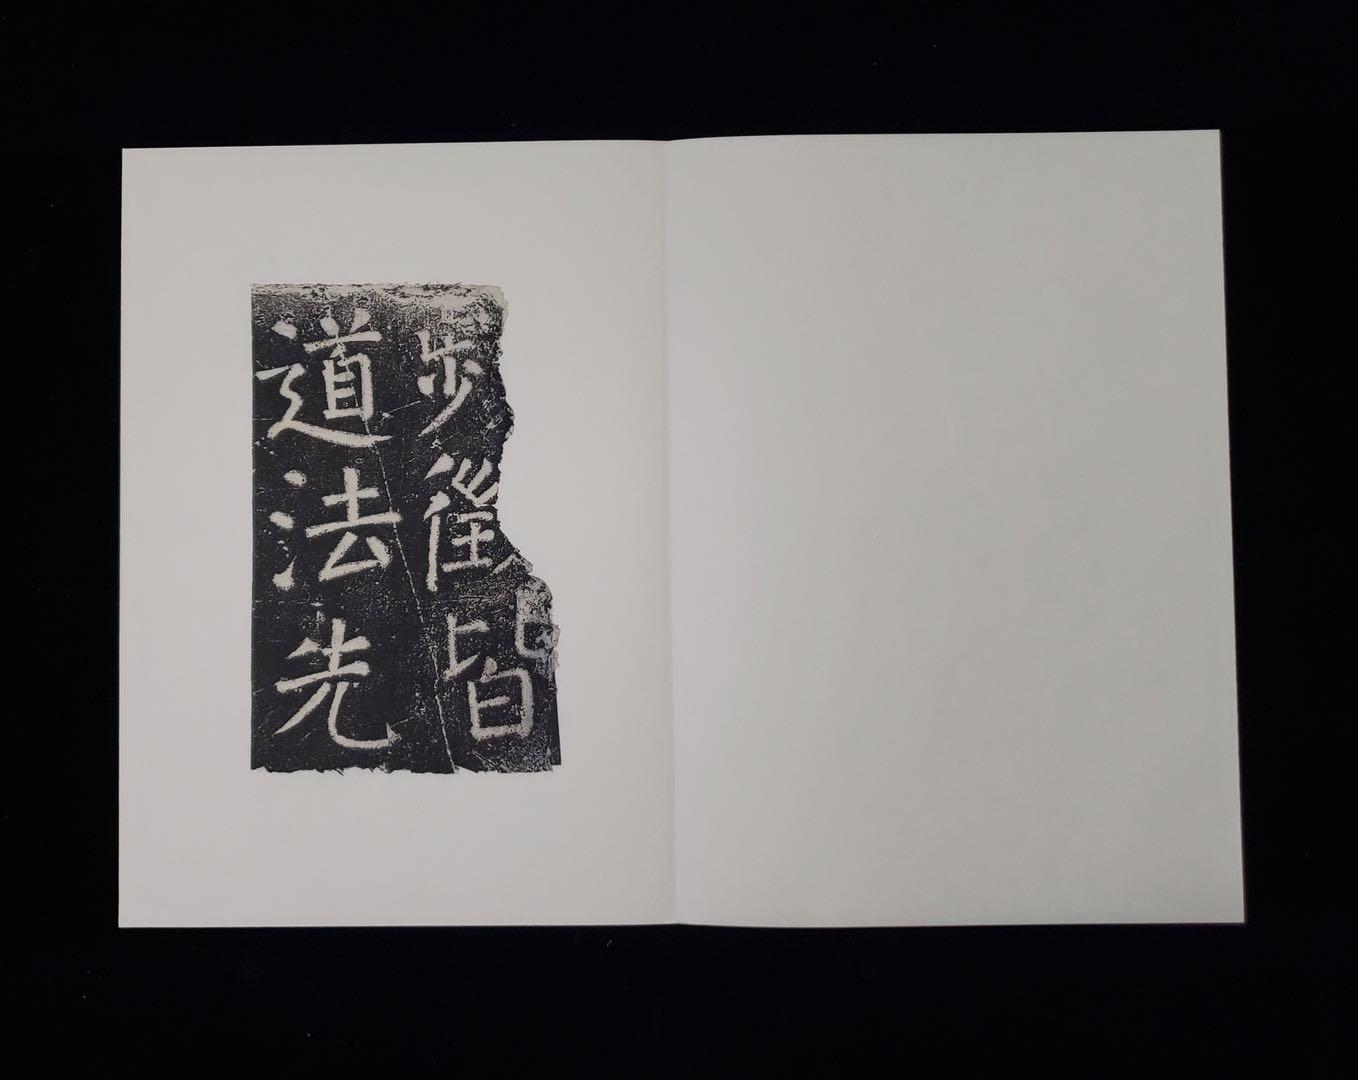 步徑皆
道法先